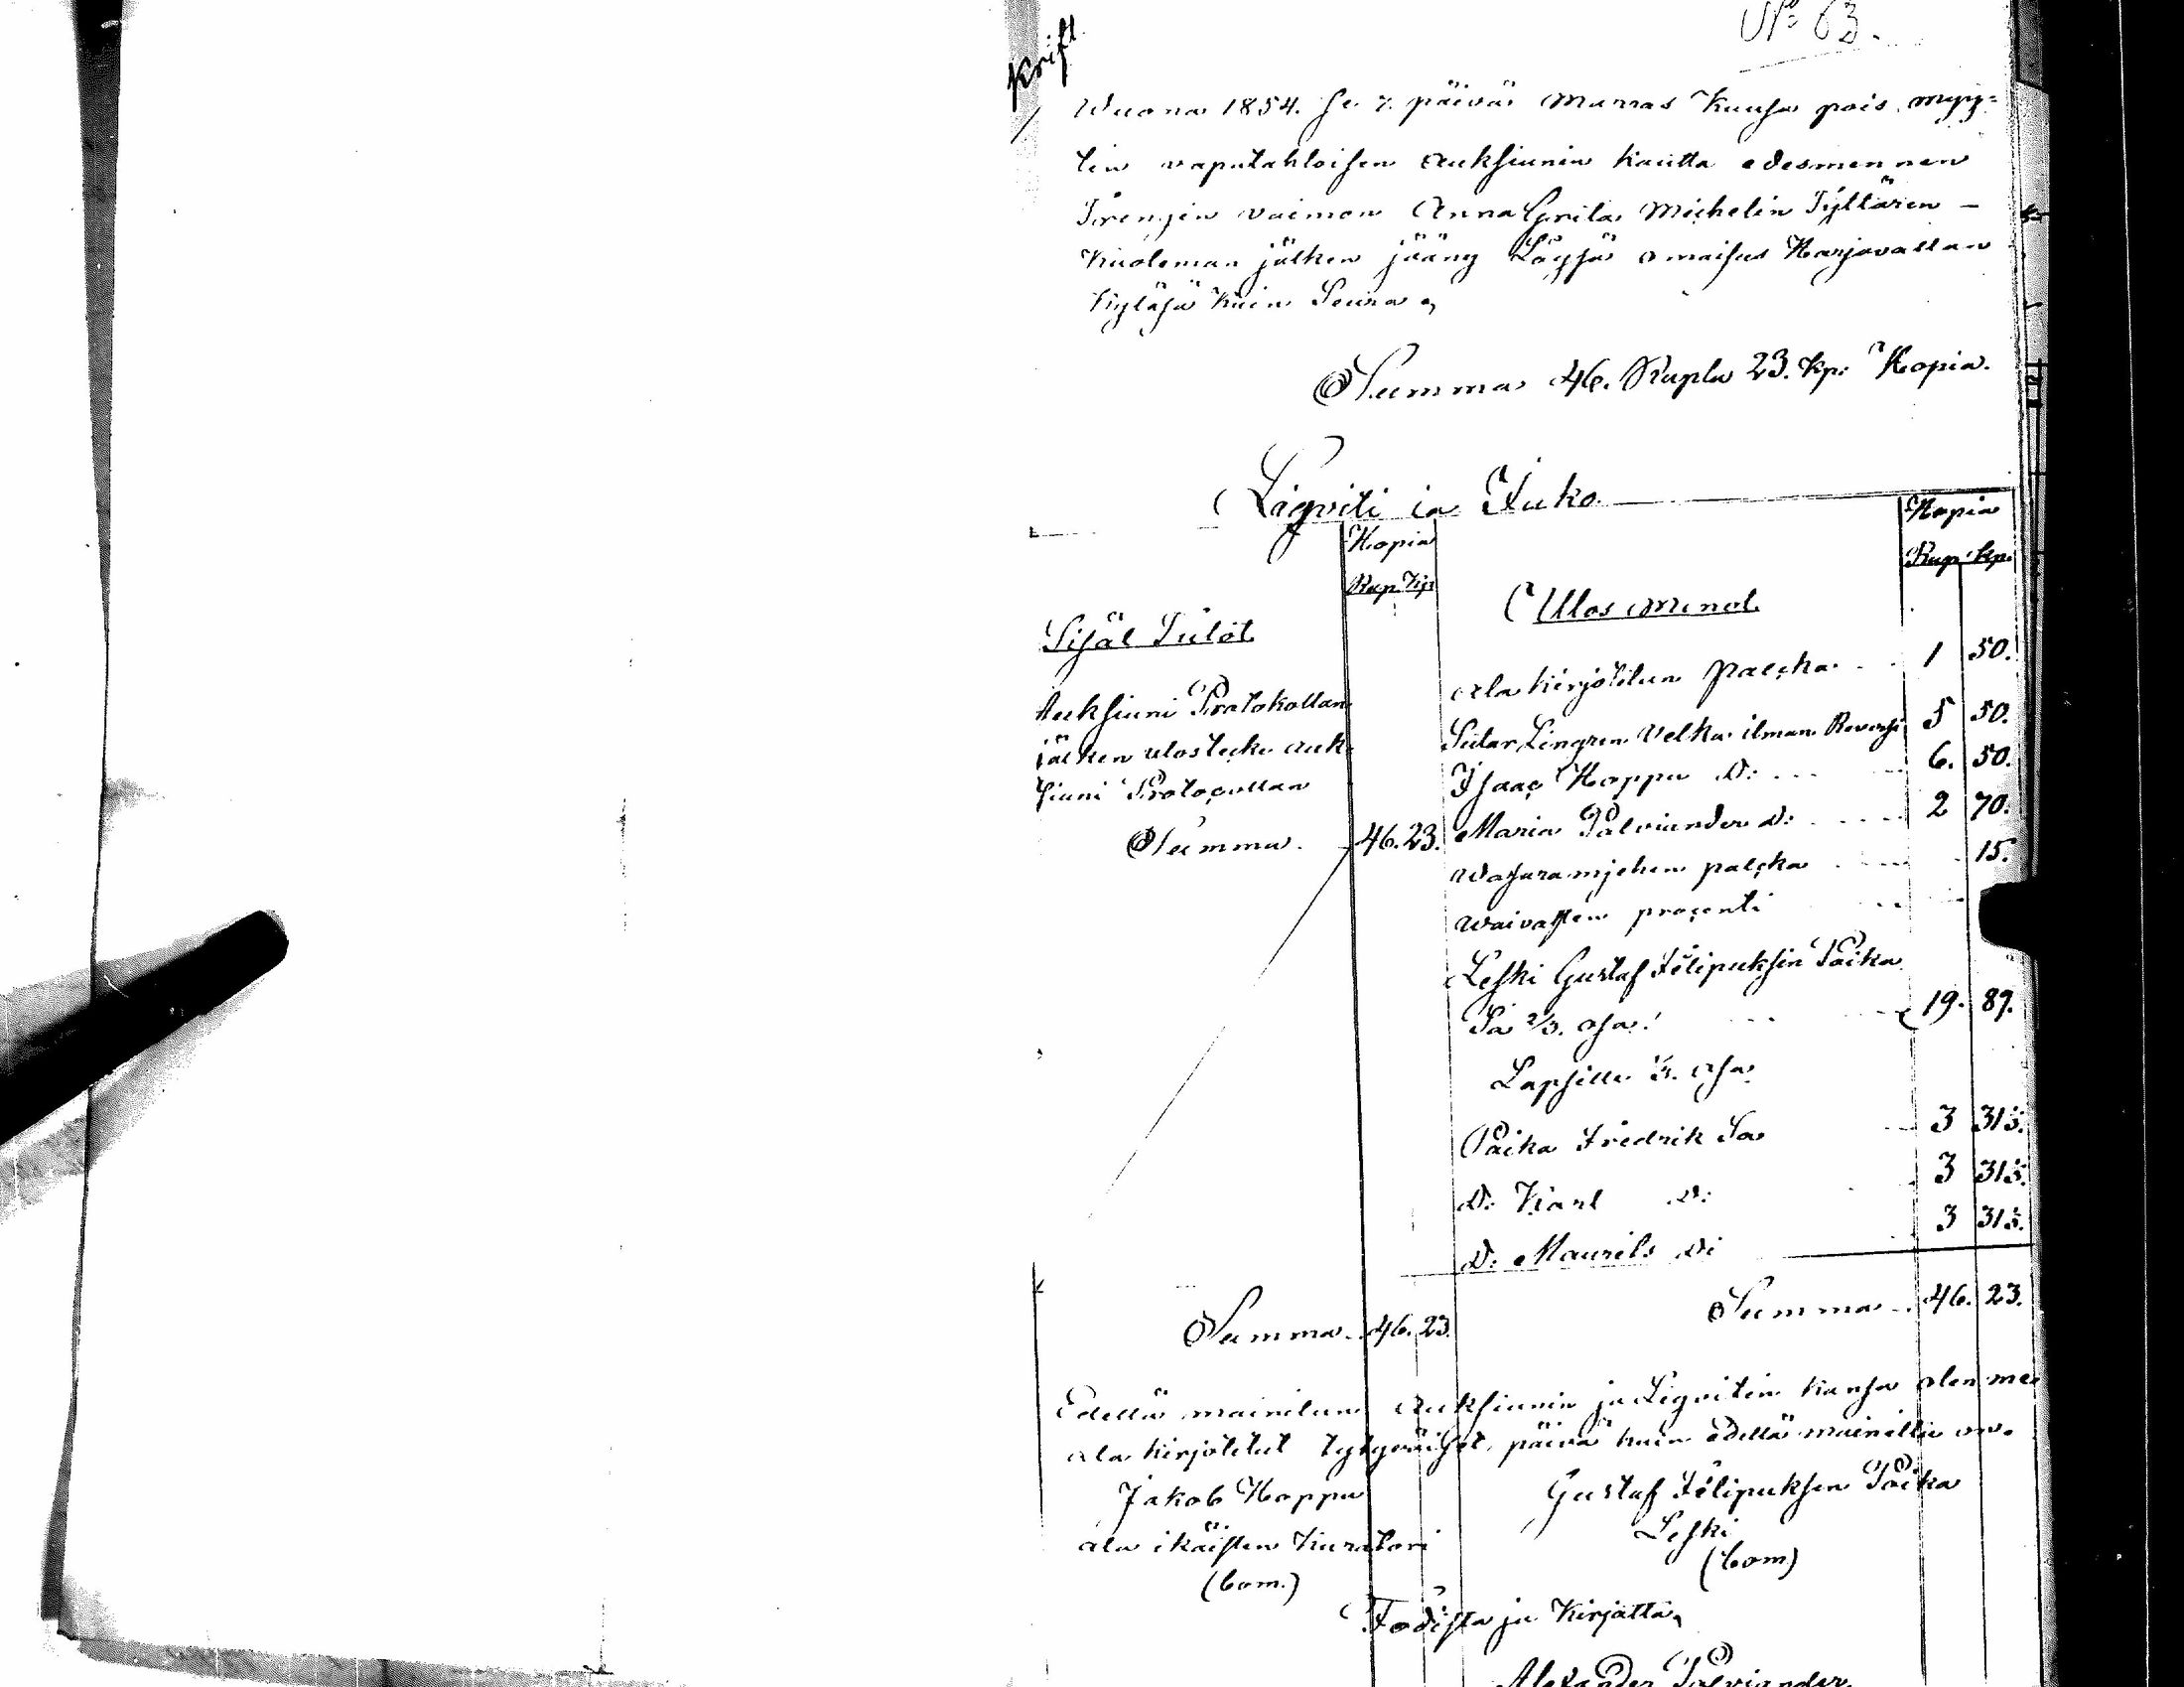 No 63.
krift
Wuona 1854. se 7. päivä Marras Kuusa pois myy=
tin vaputahtoisen Auksiunin kautta edesmennen
Trengin vaimon Anna Greta Michelin Tyttären -
Kuoleman jälken jääny Löysä omaisus Harjavallan
Kyläsä kuin Seura,
Summa 46. Rupla 23. kp: Hopia.
Liqviti ia Juko
Hopia
Rup. Kp:
Sisäl Tulot
Auksiuni Protokollan
jälken ulosteko auk-
siuni Protocollan
Summa. 46. 23.
Hopia
Rup. kp.
Ulos Menot
Ala kirjotetun palcka 1 50.
Sutar Lingren Velka ilman Reversi 5 50.
Isaac Hoppu D: 6. 50.
Maria Palviander D: 2 70.
Wasaramjehen palcka 15.
Waivasten procenti
Leski Gustaf Filipuksin Poika
Sa 2/3. osa! 19. 89.
Lapsille 1/3. osa
Poika Fredrik Sa 3 315.
D: Karl D: 3 315.
D: Maurits D: 3 315.
Summa 46. 23.
Summa 46. 23.
Edellä mainitun Auksiunin ja Liqvitin kansa olen me
ala kirjotetut tytyväiset, päivä kuin edellä mainittu on.
Jakob Hoppu
ala ikäisten Kuratori
(bom.)
Gustaf Filipuksen Poika
Leski
(bom)
Todista ja Kirjotta,
Alexander Palviander.